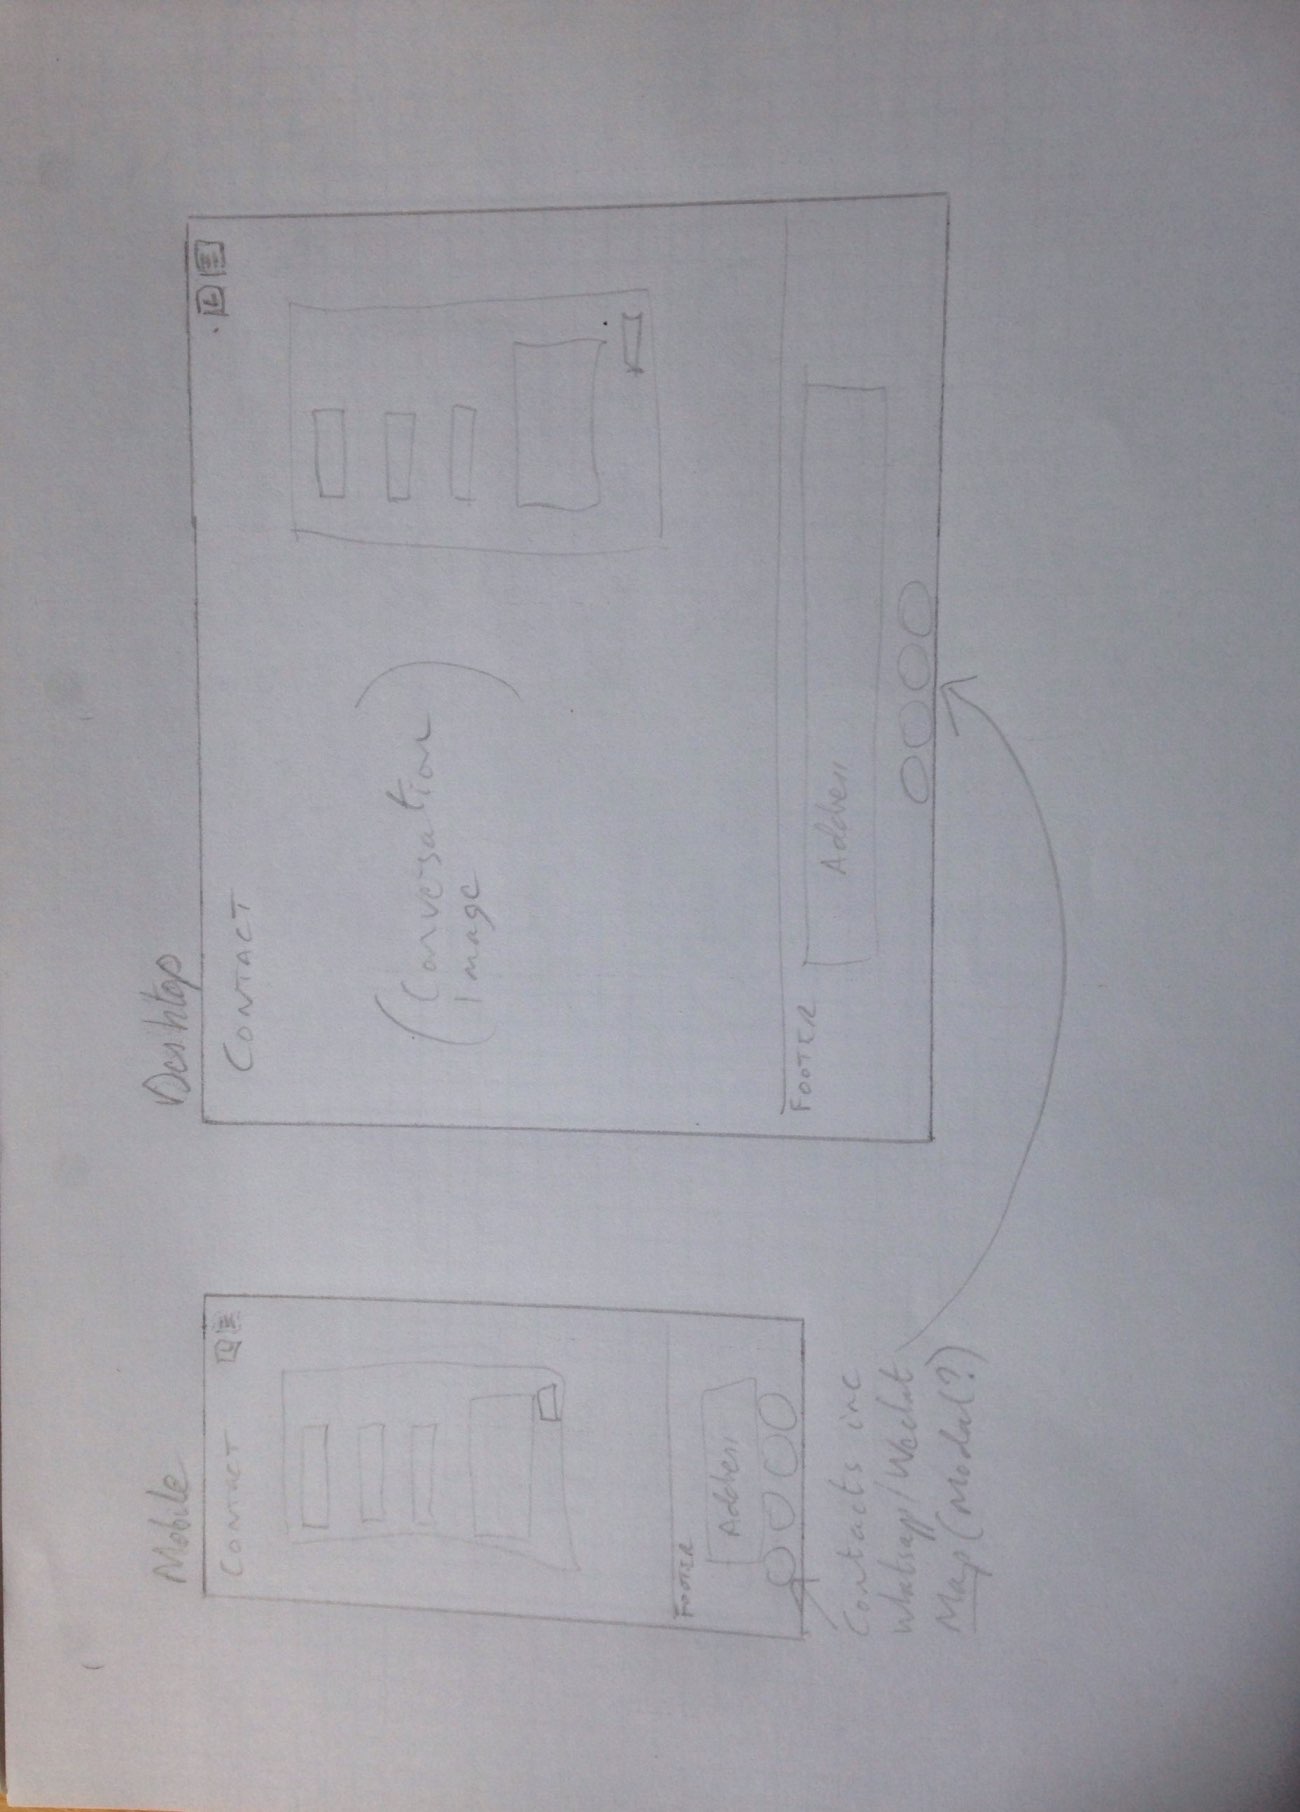 Mobile
CONTACT
L
FOOTER
Address
Contacts inc
Whatsapp/Wechat
Map (Modal?)
Desktop
CONTACT
L
(Conversation
Image)
FOOTER
Address